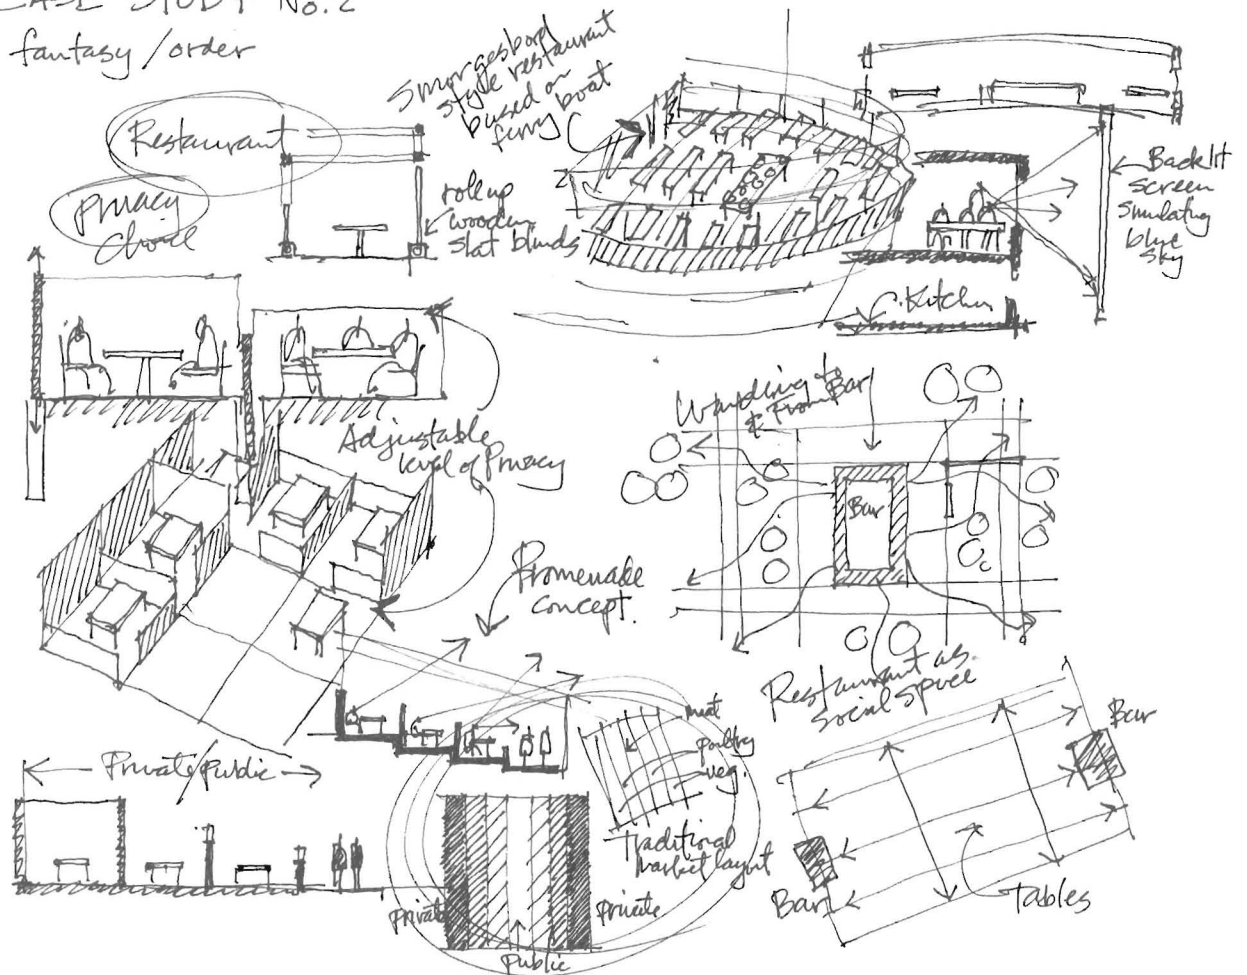 CASE STUDY No. 2
fantasy / order
Restaurant
Privacy
Choice
Smorgesbord
style restaurant
based on
ferry boat
roll up
wooden
slat blinds
Backlit
screen
simulating
blue
sky
Kitchen
Adjustable
level of Privacy
Wandering to
& From Bar
Bar
Promenade
concept.
Restaurant as
social space
Bar
Bar
Tables
meat
poultry
veg.
Traditional
market layout
Private/public
private
private
public